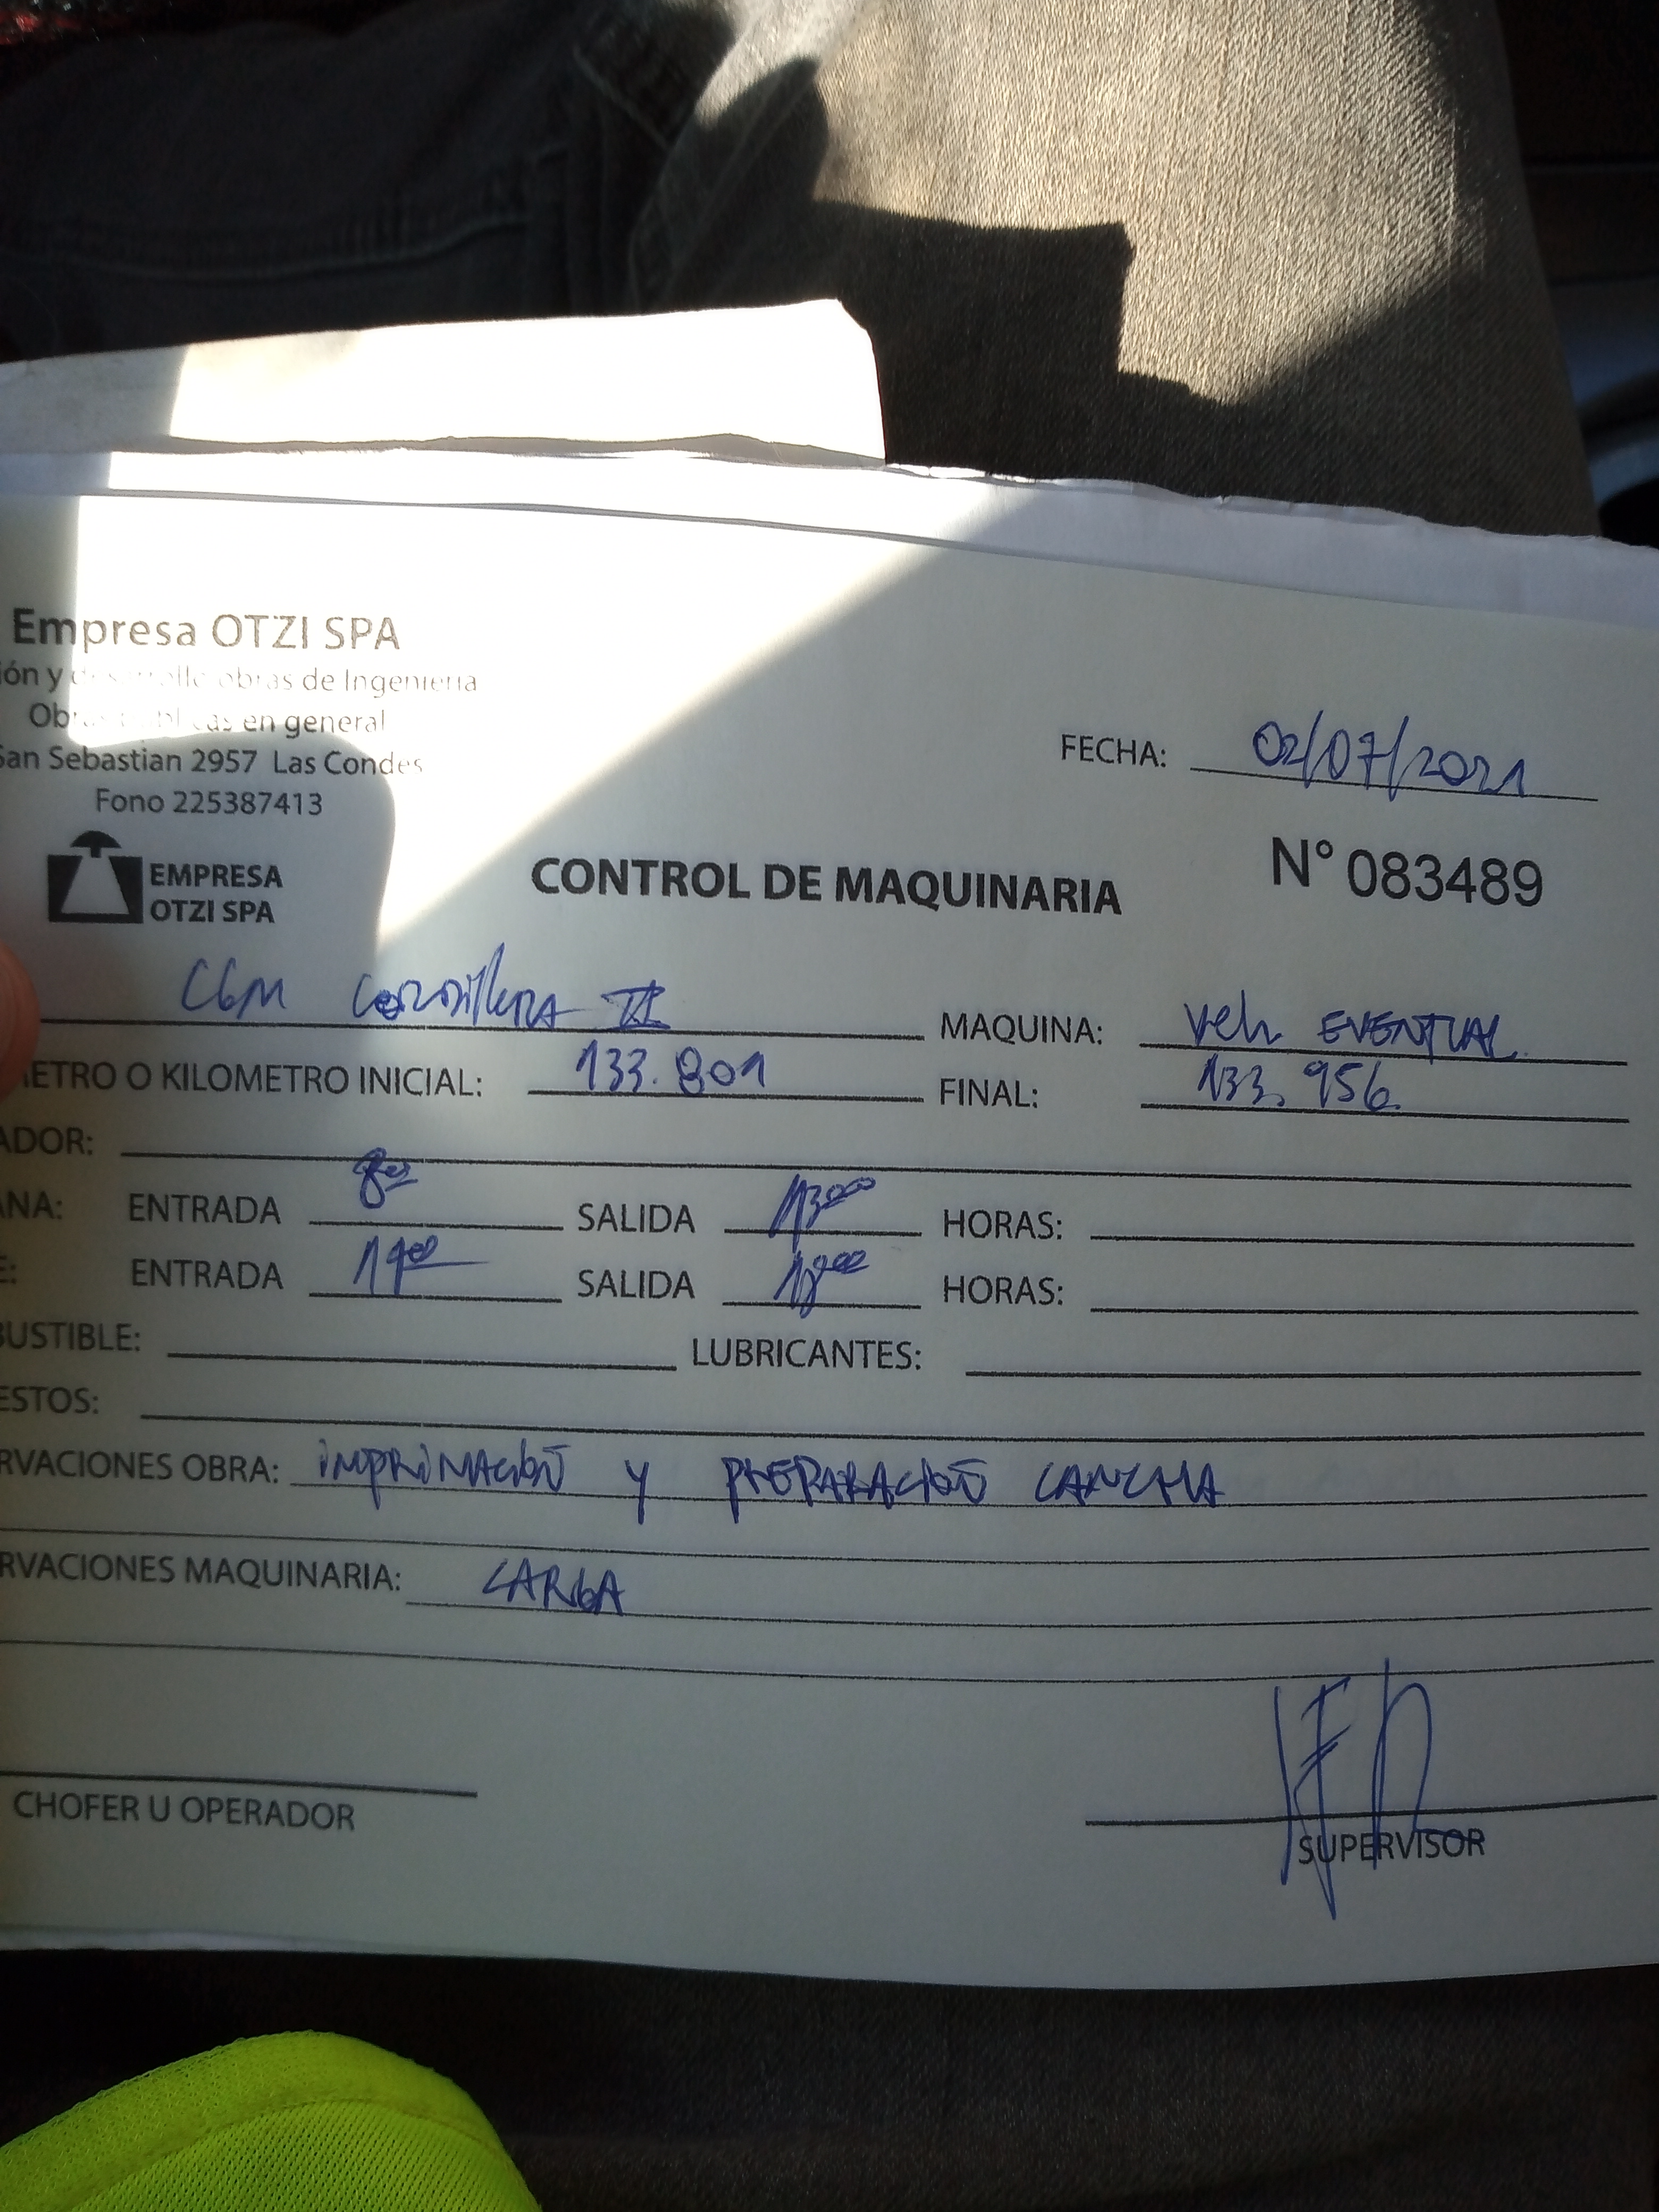 Empresa OTZI SPA
ión y desarrollo obras de Ingenieria
Obras publicas en general
San Sebastian 2957 Las Condes
Fono 225387413
EMPRESA
OTZI SPA
FECHA: 02/07/2021
CONTROL DE MAQUINARIA
N° 083489
CGM Cordillera II MAQUINA: Veh EVENTUAL
METRO O KILOMETRO INICIAL: 133.801 FINAL: 133.956
ADOR:
ANA: ENTRADA 8⁰⁰ SALIDA 13⁰⁰ HORAS:
E: ENTRADA 14⁰⁰ SALIDA 18⁰⁰ HORAS:
BUSTIBLE: LUBRICANTES:
ESTOS:
RVACIONES OBRA: imprimación y PREPARACIÓN CANCHA
RVACIONES MAQUINARIA: CARGA
CHOFER U OPERADOR
SUPERVISOR